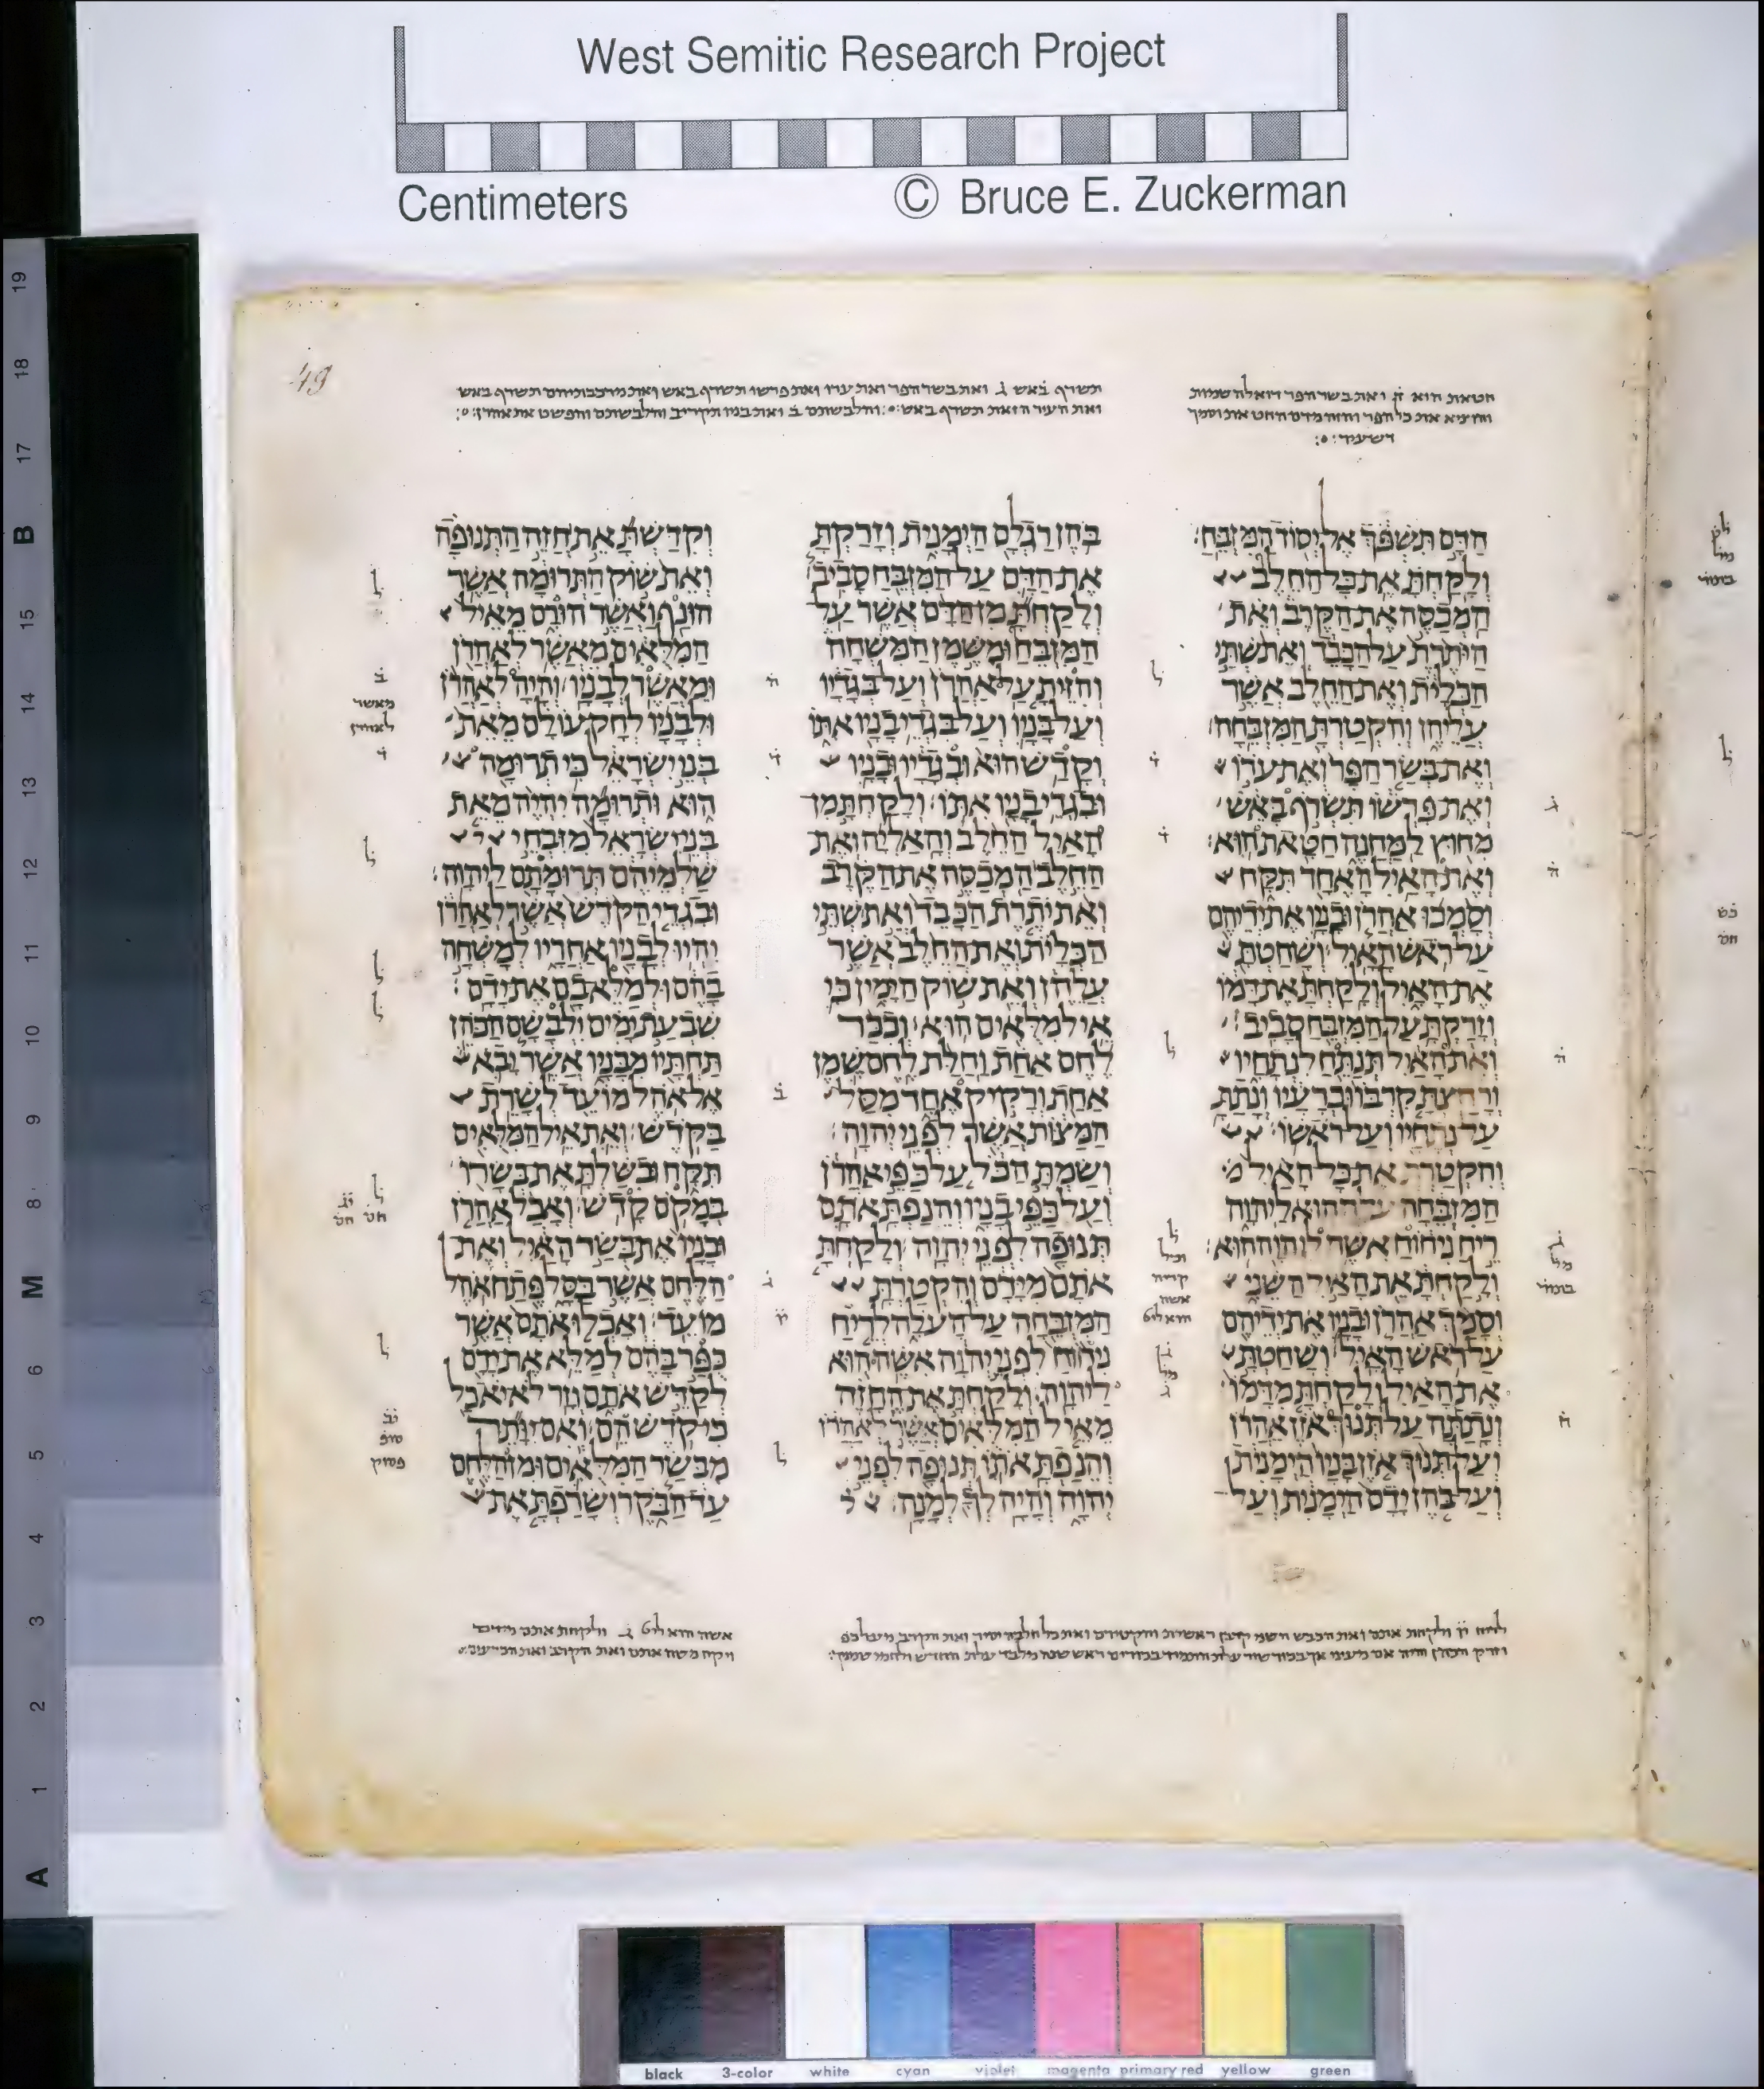 West Semitic Research Project
Centimeters © Bruce E. Zuckerman
49
הַדָּם תִּשְׁפֹּךְ אֶל יְסוֹד הַמִּזְבֵּחַ׃
וְלָקַחְתָּ אֶת כָּל הַחֵלֶב
הַמְכַסֶּה אֶת הַקֶּרֶב וְאֵת
הַיֹּתֶרֶת עַל הַכָּבֵד וְאֵת שְׁתֵּי
הַכְּלָיֹת וְאֶת הַחֵלֶב אֲשֶׁר
עֲלֵיהֶן וְהִקְטַרְתָּ הַמִּזְבֵּחָה׃
וְאֶת בְּשַׂר הַפָּר וְאֶת עֹרוֹ
וְאֶת פִּרְשׁוֹ תִּשְׂרֹף בָּאֵשׁ
מִחוּץ לַמַּחֲנֶה חַטָּאת הוּא׃
וְאֶת הָאַיִל הָאֶחָד תִּקָּח
וְסָמְכוּ אַהֲרֹן וּבָנָיו אֶת יְדֵיהֶם
עַל רֹאשׁ הָאָיִל׃ וְשָׁחַטְתָּ
אֶת הָאָיִל וְלָקַחְתָּ אֶת דָּמוֹ
וְזָרַקְתָּ עַל הַמִּזְבֵּחַ סָבִיב׃
וְאֶת הָאַיִל תְּנַתֵּחַ לִנְתָחָיו
וְרָחַצְתָּ קִרְבּוֹ וּכְרָעָיו וְנָתַתָּ
עַל נְתָחָיו וְעַל רֹאשׁוֹ׃
וְהִקְטַרְתָּ אֶת כָּל הָאַיִל
הַמִּזְבֵּחָה עֹלָה הוּא לַיהוָה
רֵיחַ נִיחוֹחַ אִשֶּׁה לַיהוָה הוּא׃
וְלָקַחְתָּ אֵת הָאַיִל הַשֵּׁנִי
וְסָמַךְ אַהֲרֹן וּבָנָיו אֶת יְדֵיהֶם
עַל רֹאשׁ הָאָיִל׃ וְשָׁחַטְתָּ
אֶת הָאַיִל וְלָקַחְתָּ מִדָּמוֹ
וְנָתַתָּה עַל תְּנוּךְ אֹזֶן אַהֲרֹן
וְעַל תְּנוּךְ אֹזֶן בָּנָיו הַיְמָנִית
וְעַל בֹּהֶן יָדָם הַיְמָנִית וְעַל
בֹּהֶן רַגְלָם הַיְמָנִית וְזָרַקְתָּ
אֶת הַדָּם עַל הַמִּזְבֵּחַ סָבִיב׃
וְלָקַחְתָּ מִן הַדָּם אֲשֶׁר עַל
הַמִּזְבֵּחַ וּמִשֶּׁמֶן הַמִּשְׁחָה
וְהִזֵּיתָ עַל אַהֲרֹן וְעַל בְּגָדָיו
וְעַל בָּנָיו וְעַל בִּגְדֵי בָנָיו אִתּוֹ
וְקָדַשׁ הוּא וּבְגָדָיו וּבָנָיו
וּבִגְדֵי בָנָיו אִתּוֹ׃ וְלָקַחְתָּ מִן
הָאַיִל הַחֵלֶב וְהָאַלְיָה וְאֶת
הַחֵלֶב הַמְכַסֶּה אֶת הַקֶּרֶב
וְאֵת יֹתֶרֶת הַכָּבֵד וְאֵת שְׁתֵּי
הַכְּלָיֹת וְאֶת הַחֵלֶב אֲשֶׁר
עֲלֵהֶן וְאֵת שׁוֹק הַיָּמִין כִּי
אֵיל מִלֻּאִים הוּא׃ וְכִכַּר
לֶחֶם אַחַת וְחַלַּת לֶחֶם שֶׁמֶן
אַחַת וְרָקִיק אֶחָד מִסַּל
הַמַּצּוֹת אֲשֶׁר לִפְנֵי יְהוָה׃
וְשַׂמְתָּ הַכֹּל עַל כַּפֵּי אַהֲרֹן
וְעַל כַּפֵּי בָנָיו וְהֵנַפְתָּ אֹתָם
תְּנוּפָה לִפְנֵי יְהוָה׃ וְלָקַחְתָּ
אֹתָם מִיָּדָם וְהִקְטַרְתָּ
הַמִּזְבֵּחָה עַל הָעֹלָה לְרֵיחַ
נִיחוֹחַ לִפְנֵי יְהוָה אִשֶּׁה הוּא
לַיהוָה׃ וְלָקַחְתָּ אֶת הֶחָזֶה
מֵאֵיל הַמִּלֻּאִים אֲשֶׁר לְאַהֲרֹן
וְהֵנַפְתָּ אֹתוֹ תְּנוּפָה לִפְנֵי
יְהוָה וְהָיָה לְךָ לְמָנָה׃
וְקִדַּשְׁתָּ אֵת חֲזֵה הַתְּנוּפָה
וְאֵת שׁוֹק הַתְּרוּמָה אֲשֶׁר
הוּנַף וַאֲשֶׁר הוּרָם מֵאֵיל
הַמִּלֻּאִים מֵאֲשֶׁר לְאַהֲרֹן
וּמֵאֲשֶׁר לְבָנָיו׃ וְהָיָה לְאַהֲרֹן
וּלְבָנָיו לְחָק עוֹלָם מֵאֵת
בְּנֵי יִשְׂרָאֵל כִּי תְרוּמָה
הוּא וּתְרוּמָה יִהְיֶה מֵאֵת
בְּנֵי יִשְׂרָאֵל מִזִּבְחֵי
שַׁלְמֵיהֶם תְּרוּמָתָם לַיהוָה׃
וּבִגְדֵי הַקֹּדֶשׁ אֲשֶׁר לְאַהֲרֹן
יִהְיוּ לְבָנָיו אַחֲרָיו לְמָשְׁחָה
בָהֶם וּלְמַלֵּא בָם אֶת יָדָם׃
שִׁבְעַת יָמִים יִלְבָּשָׁם הַכֹּהֵן
תַּחְתָּיו מִבָּנָיו אֲשֶׁר יָבֹא
אֶל אֹהֶל מוֹעֵד לְשָׁרֵת
בַּקֹּדֶשׁ׃ וְאֵת אֵיל הַמִּלֻּאִים
תִּקָּח וּבִשַּׁלְתָּ אֶת בְּשָׂרוֹ
בְּמָקֹם קָדֹשׁ׃ וְאָכַל אַהֲרֹן
וּבָנָיו אֶת בְּשַׂר הָאַיִל וְאֶת
הַלֶּחֶם אֲשֶׁר בַּסָּל פֶּתַח אֹהֶל
מוֹעֵד׃ וְאָכְלוּ אֹתָם אֲשֶׁר
כֻּפַּר בָּהֶם לְמַלֵּא אֶת יָדָם
לְקַדֵּשׁ אֹתָם וְזָר לֹא יֹאכַל
כִּי קֹדֶשׁ הֵם׃ וְאִם יִוָּתֵר
מִבְּשַׂר הַמִּלֻּאִים וּמִן הַלֶּחֶם
עַד הַבֹּקֶר וְשָׂרַפְתָּ אֶת
19
18
17
B
15
14
13
12
11
10
9
8
M
6
5
4
3
2
1
A
black 3-color white cyan violet magenta primary red yellow green